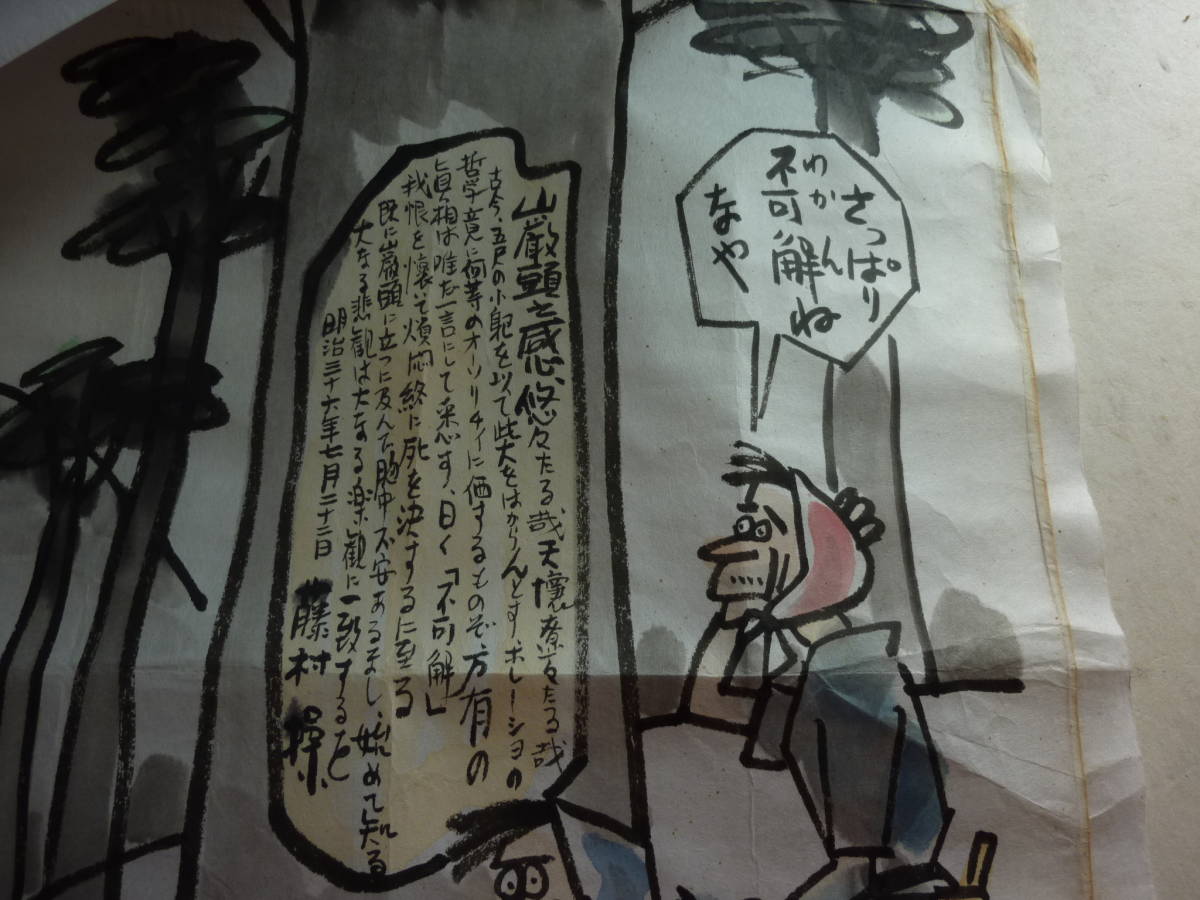 さっぱり
わかん
不可解ね
なや
巌頭之感、悠々たる哉天壤寮々たる哉
古今、五尺の小躯を以て此大をはからんとす、ホレーショの
哲学竟に何等のオーソリチィに価するものぞ、万有の
眞相は唯だ一言にして悉す、曰く「不可解」
我恨を懐いて煩悶終に死を決するに至る
既に巌頭に立つに及んで胸中不安あるまし、始めて知る
大なる悲観は大なる楽観に一致するを
明治三十六年七月二十二日 藤村操